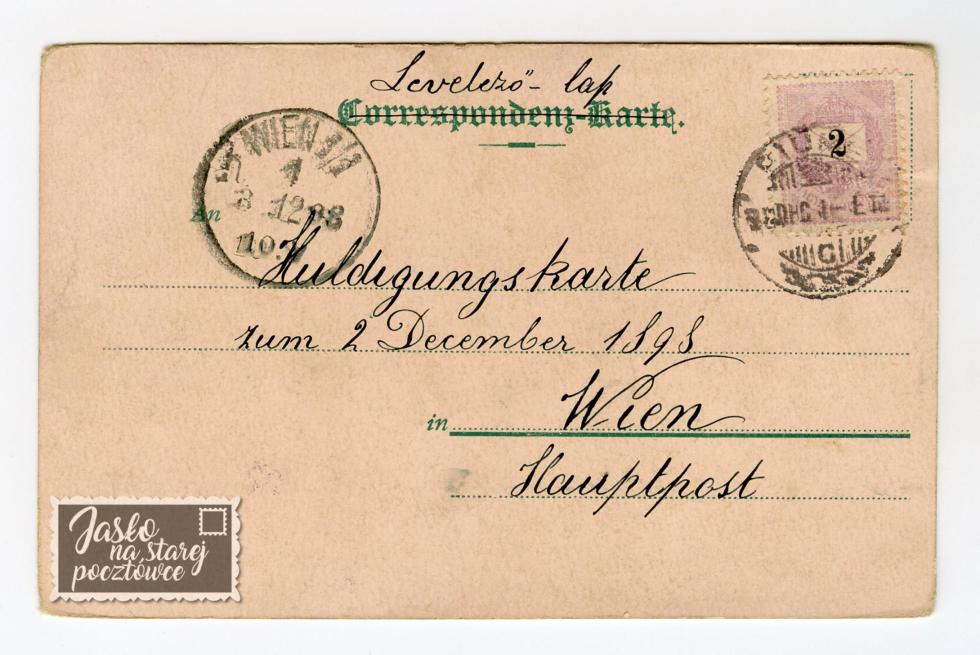 Levelező- lap
Correspondenz-Karte.
2
WIEN 1/1
1
12 98
10.
An
Huldigungskarte
zum 2 December 1898
in Wien
Hauptpost
Jasło
na starej
pocztówce